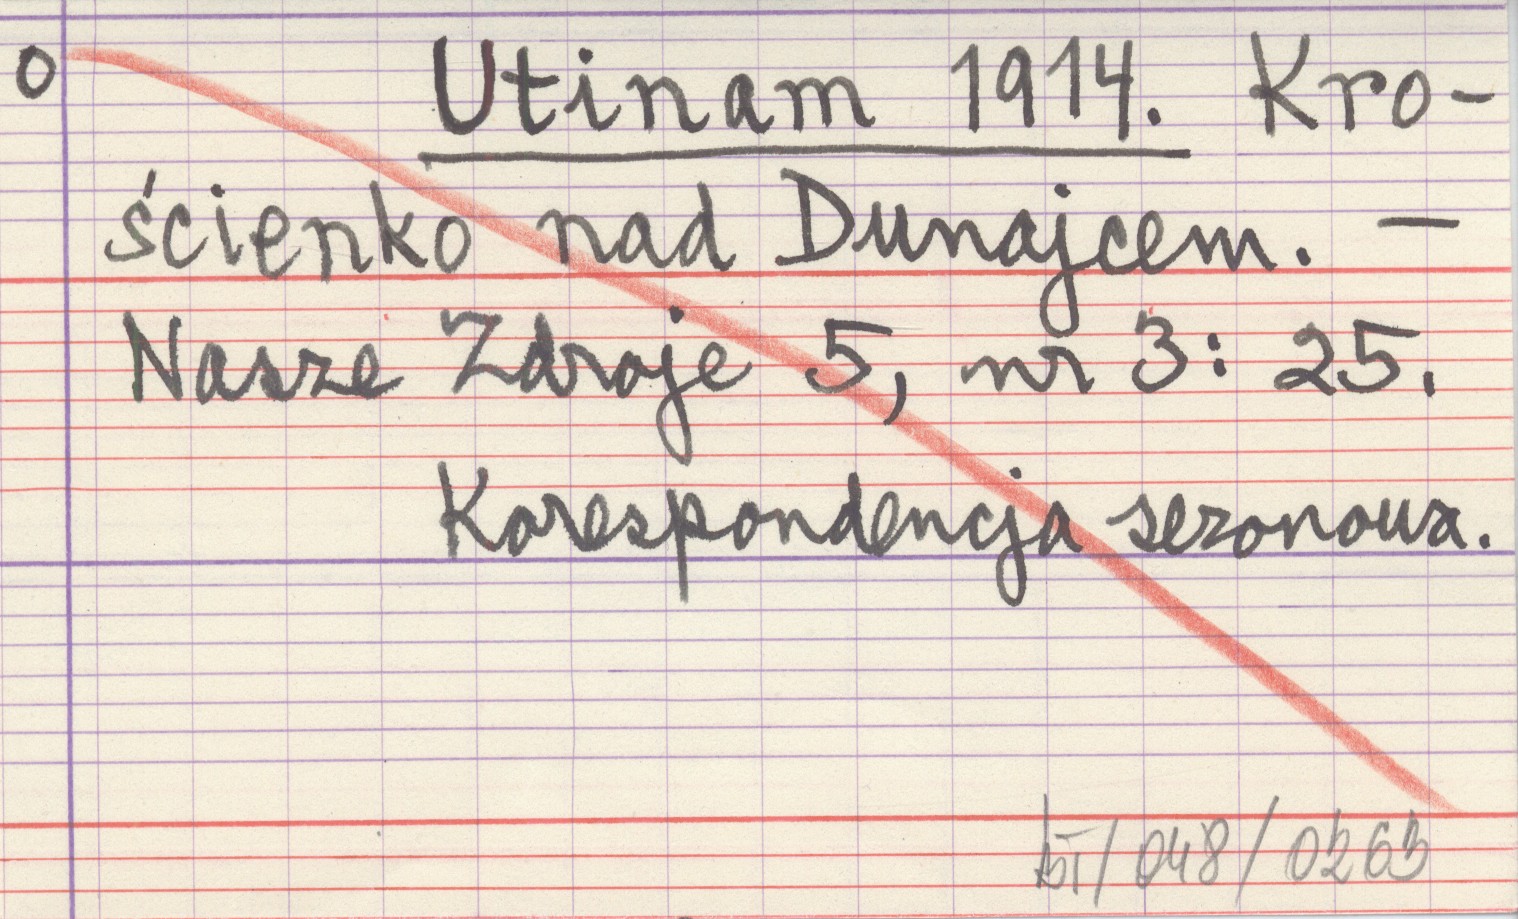 o Utinam 1914. Kro-
ścienko nad Dunajcem. —
Nasze Zdroje 5, nr 3: 25.
Korespondencja sezonowa.
/048/0263